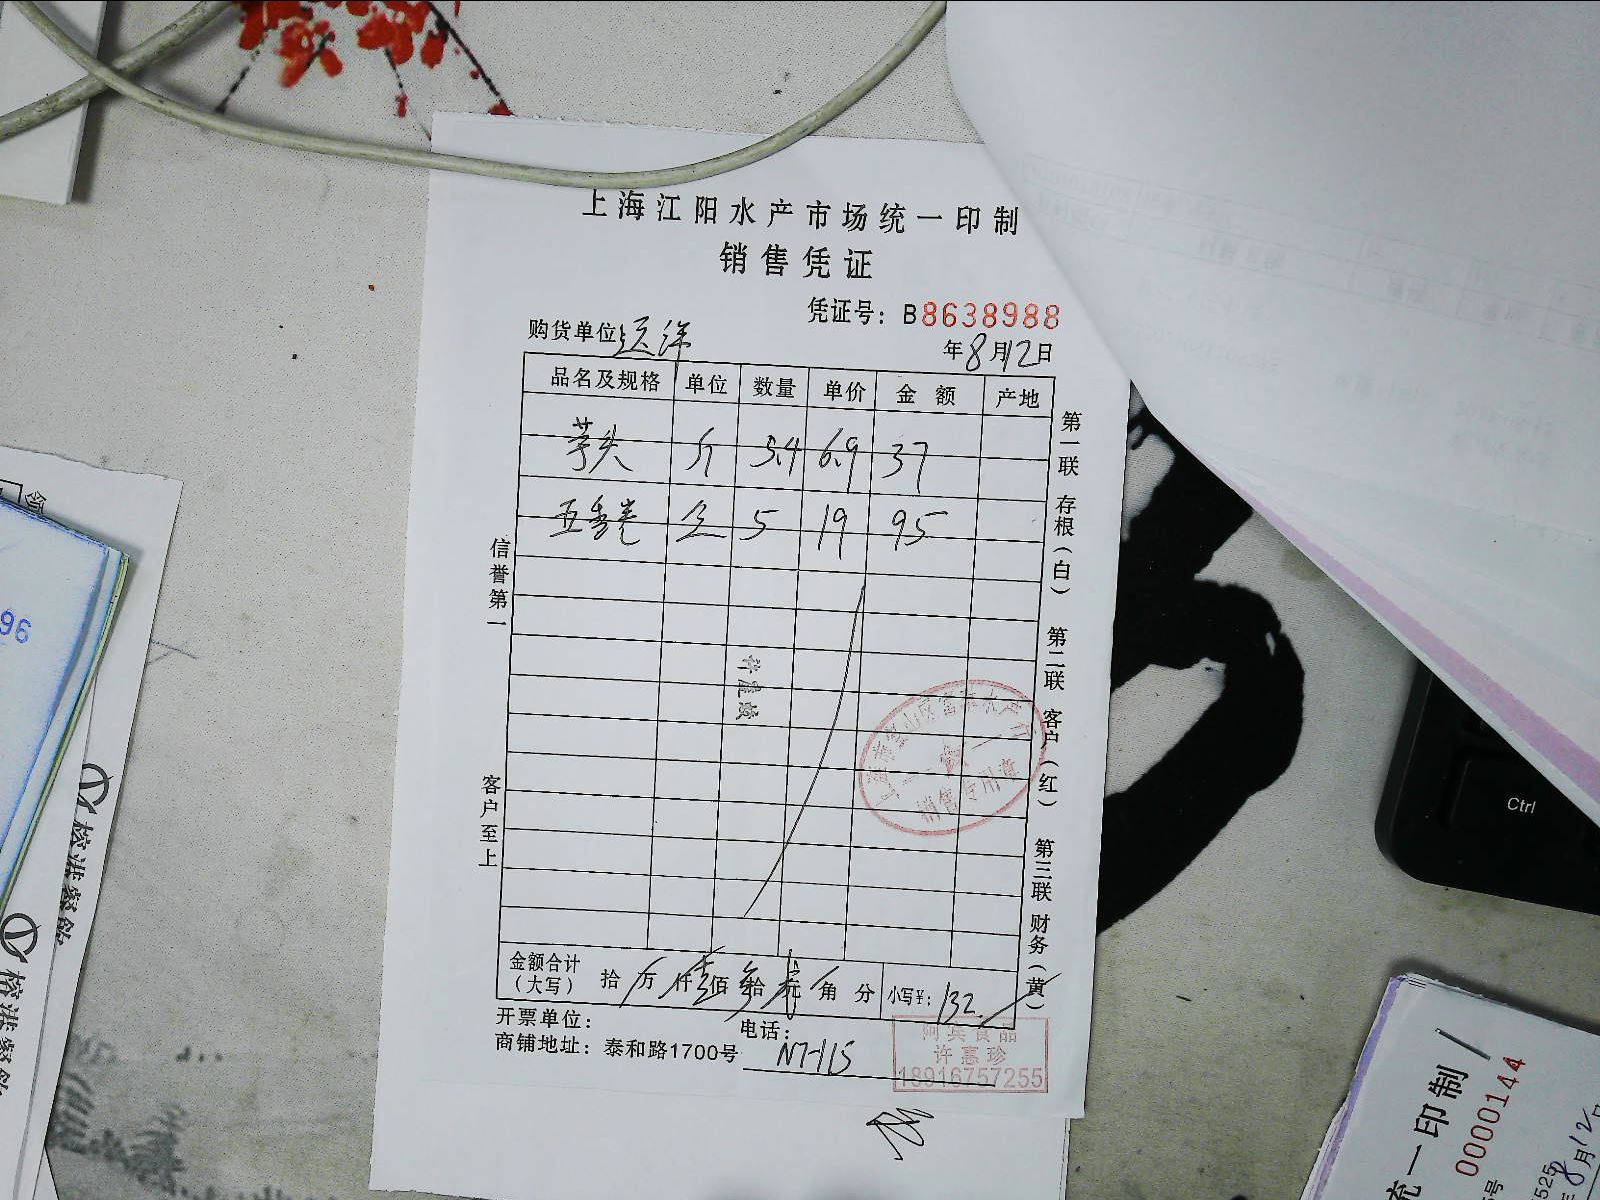 上海江阳水产市场统一印制
销售凭证
凭证号：B8638988
购货单位：远洋
年8月12日
品名及规格 单位 数量 单价 金额 产地
芋头 斤 5.4 6.9 37
五香卷 包 5 19 95
信誉第一
客户至上
第一联 存根（白） 第二联 客户（红） 第三联 财务（黄）
销售专用章
金额合计（大写） 拾 万 仟 壹 佰 叁 拾 贰 元 角 分 小写¥：132
开票单位：
电话：
商铺地址：泰和路1700号 N7-115
阿宾食品
许惠珍
18916757255
96
领
Ctrl
统一印制
0000144
8月12日